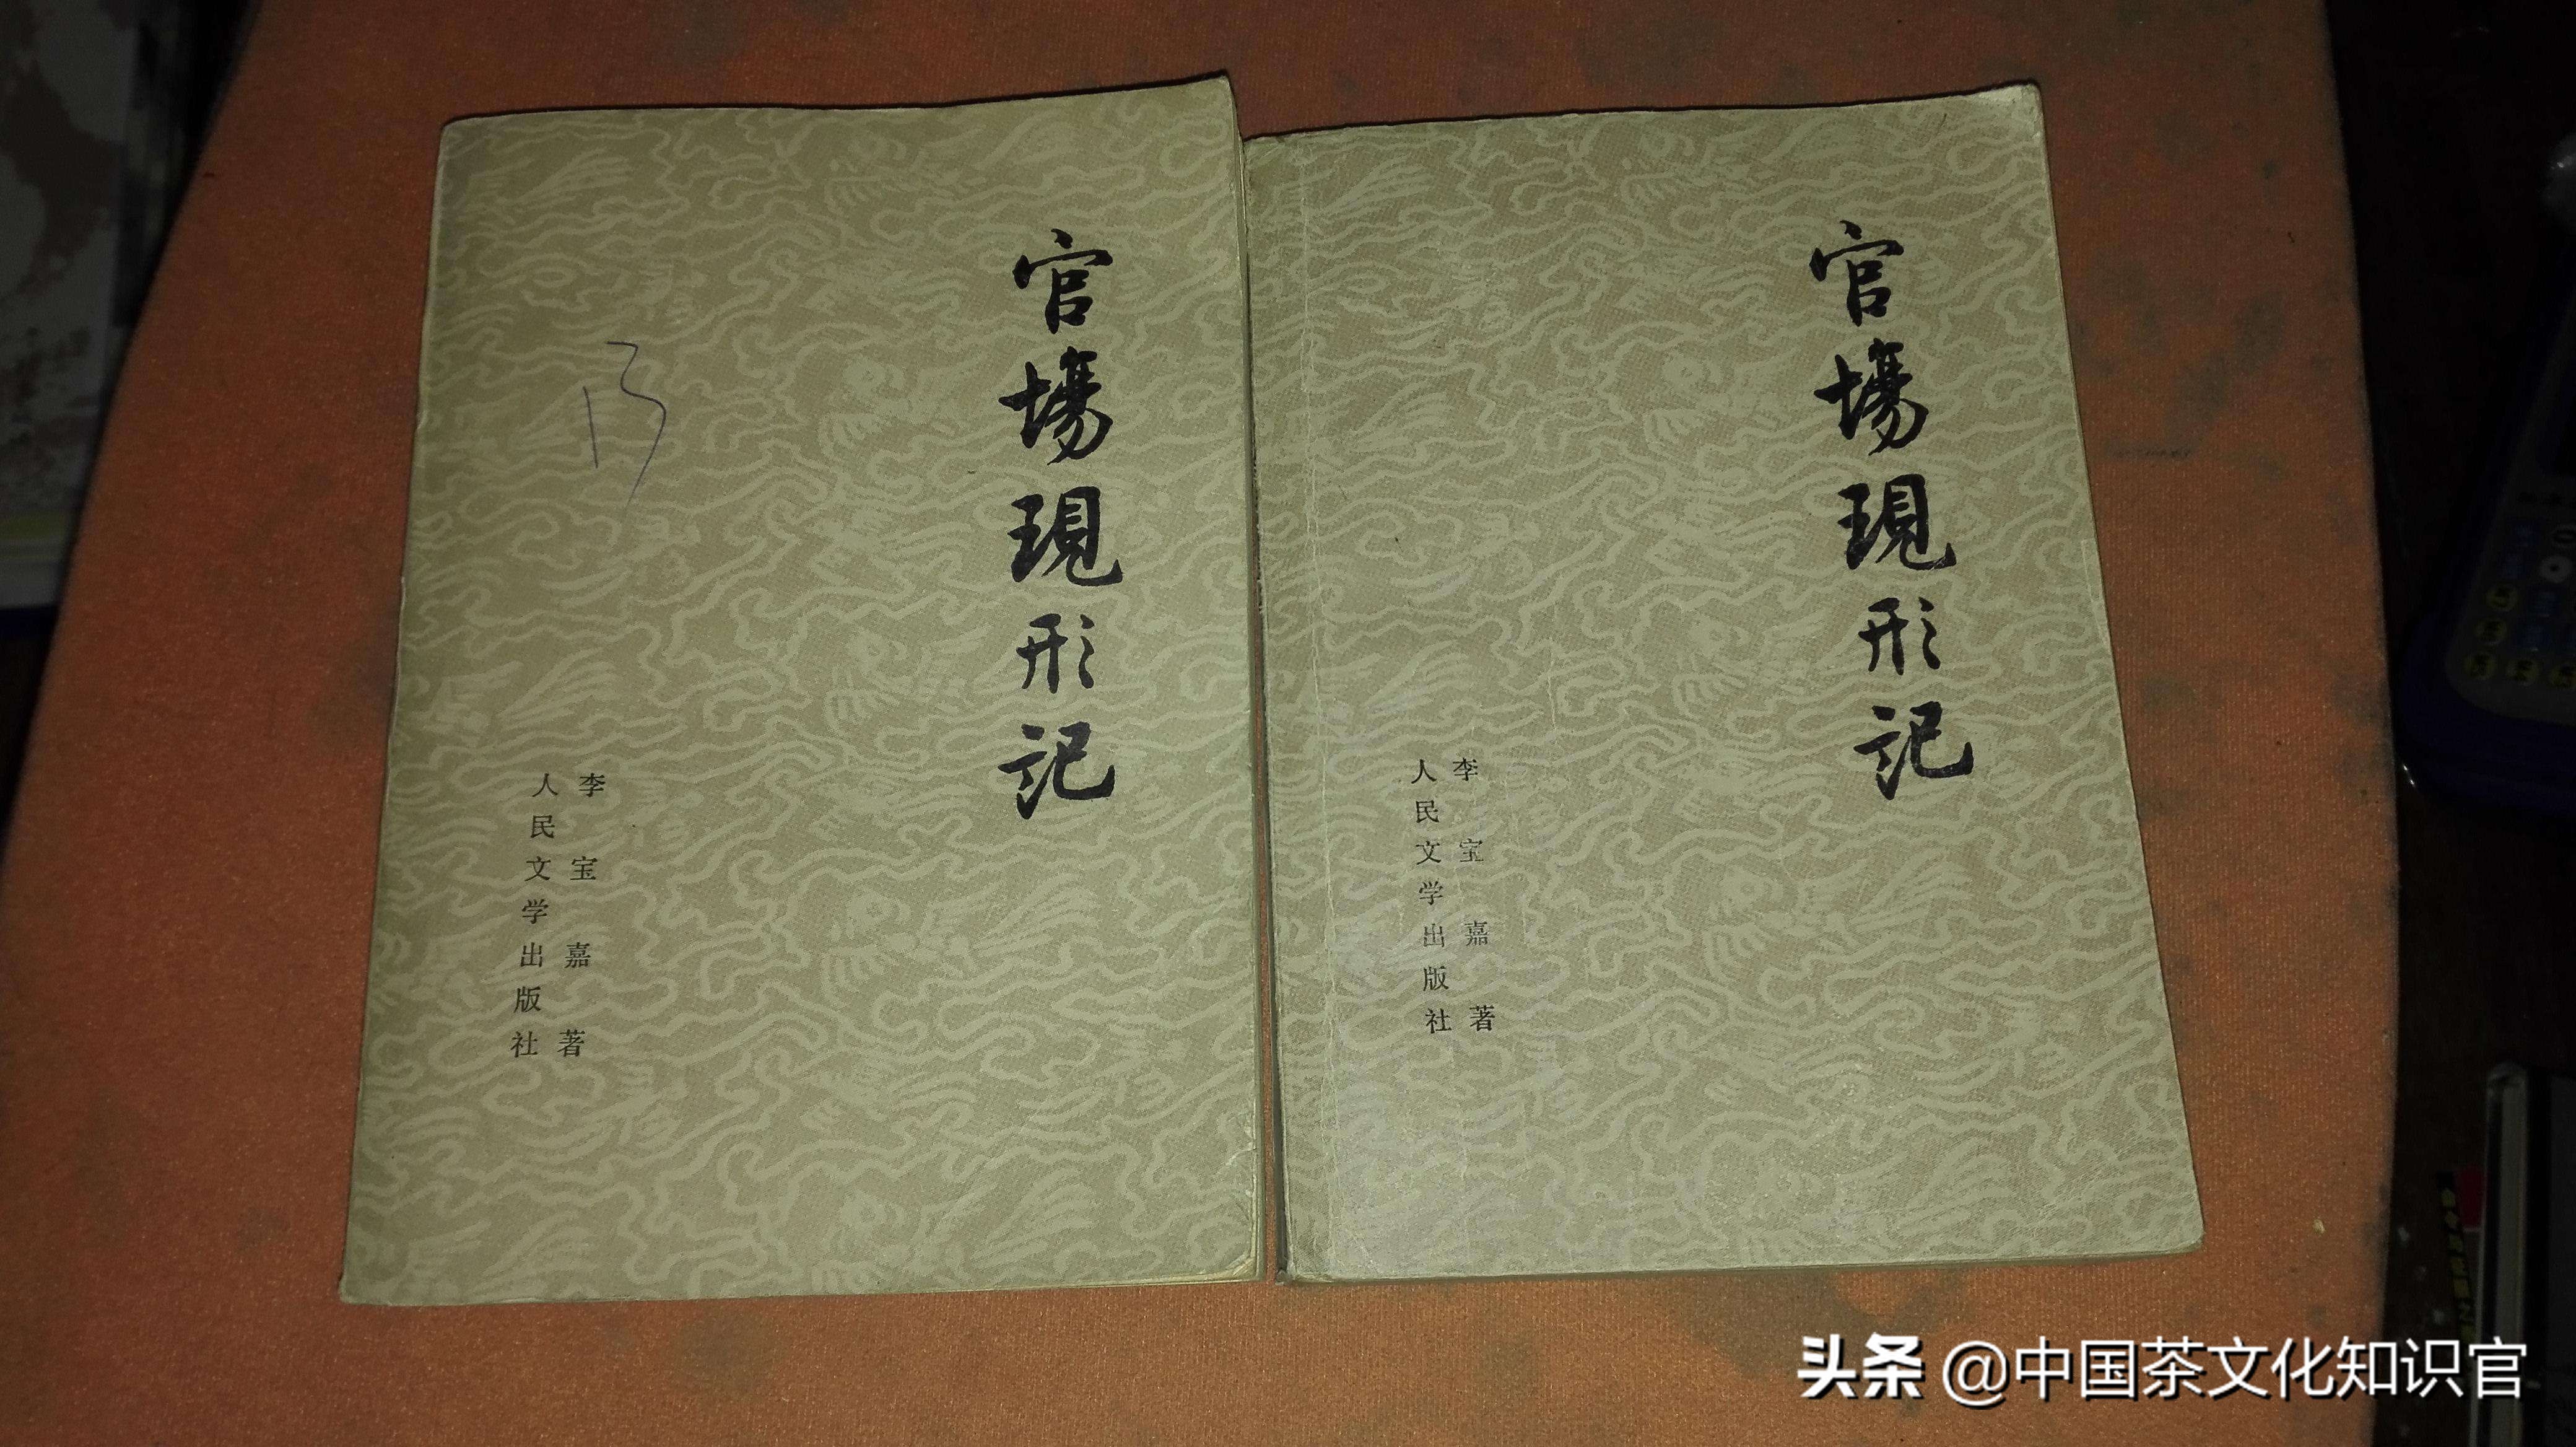 官場現形記
李宝嘉著
人民文学出版社
官場現形記
李宝嘉著
人民文学出版社
头条 @中国茶文化知识官